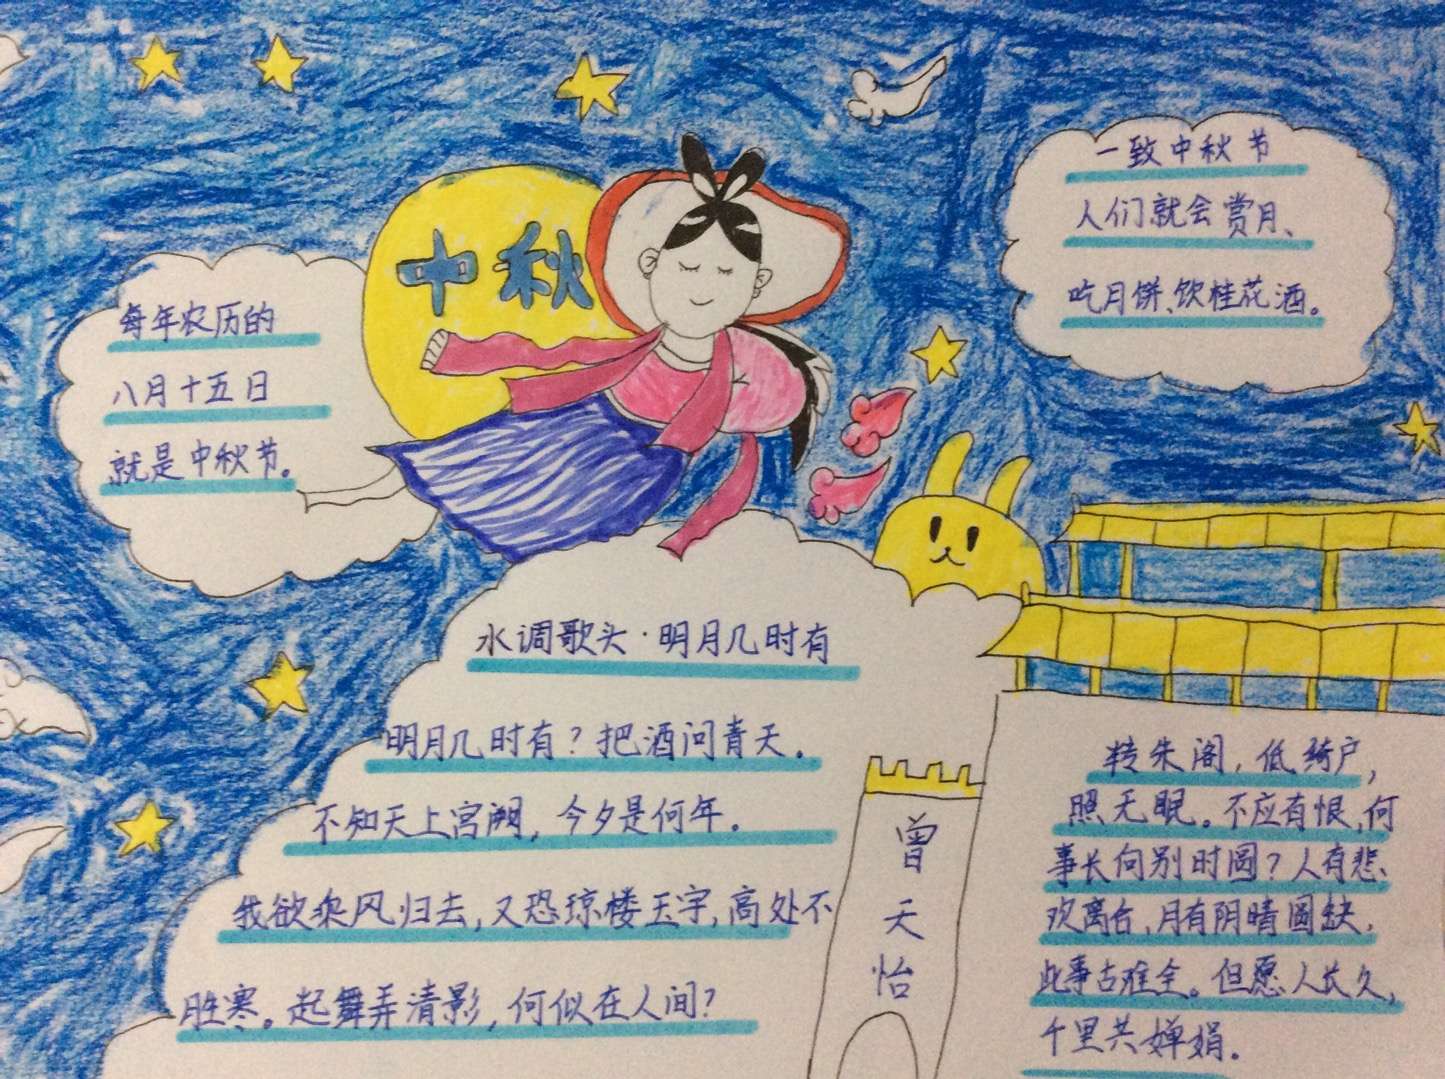 中秋
每年农历的
八月十五日
就是中秋节。
一致中秋节
人们就会赏月、
吃月饼、饮桂花酒。
水调歌头·明月几时有
明月几时有？把酒问青天。
不知天上宫阙，今夕是何年。
我欲乘风归去，又恐琼楼玉宇，高处不
胜寒。起舞弄清影，何似在人间？
转朱阁，低绮户，
照无眠。不应有恨，何
事长向别时圆？人有悲
欢离合，月有阴晴圆缺，
此事古难全。但愿人长久，
千里共婵娟。
曾天怡